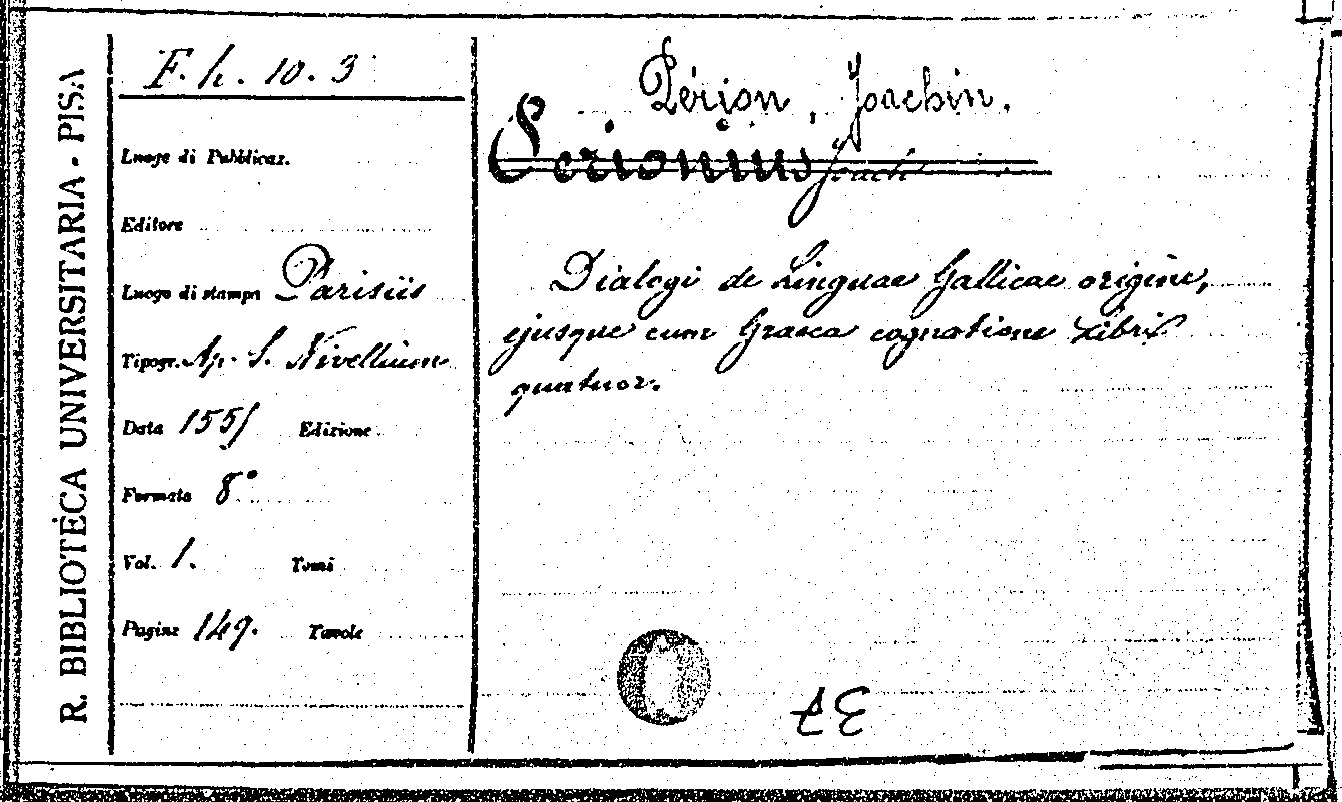 R. BIBLIOTECA UNIVERSITARIA - PISA
F. h. 10. 3
Luogo di Pubblicaz.
Editore
Luogo di stampa Parisiis
Tipogr. Ap. S. Nivellium
Data 1555
Edizione
Formato 8°
Vol. 1.
Tomi
Pagine 149.
Tavole
Périon, Joachin.
Perionius Joach
Dialogi de Linguae Gallicae origine,
ejusque cum Graeca cognatione Libri
quatuor.